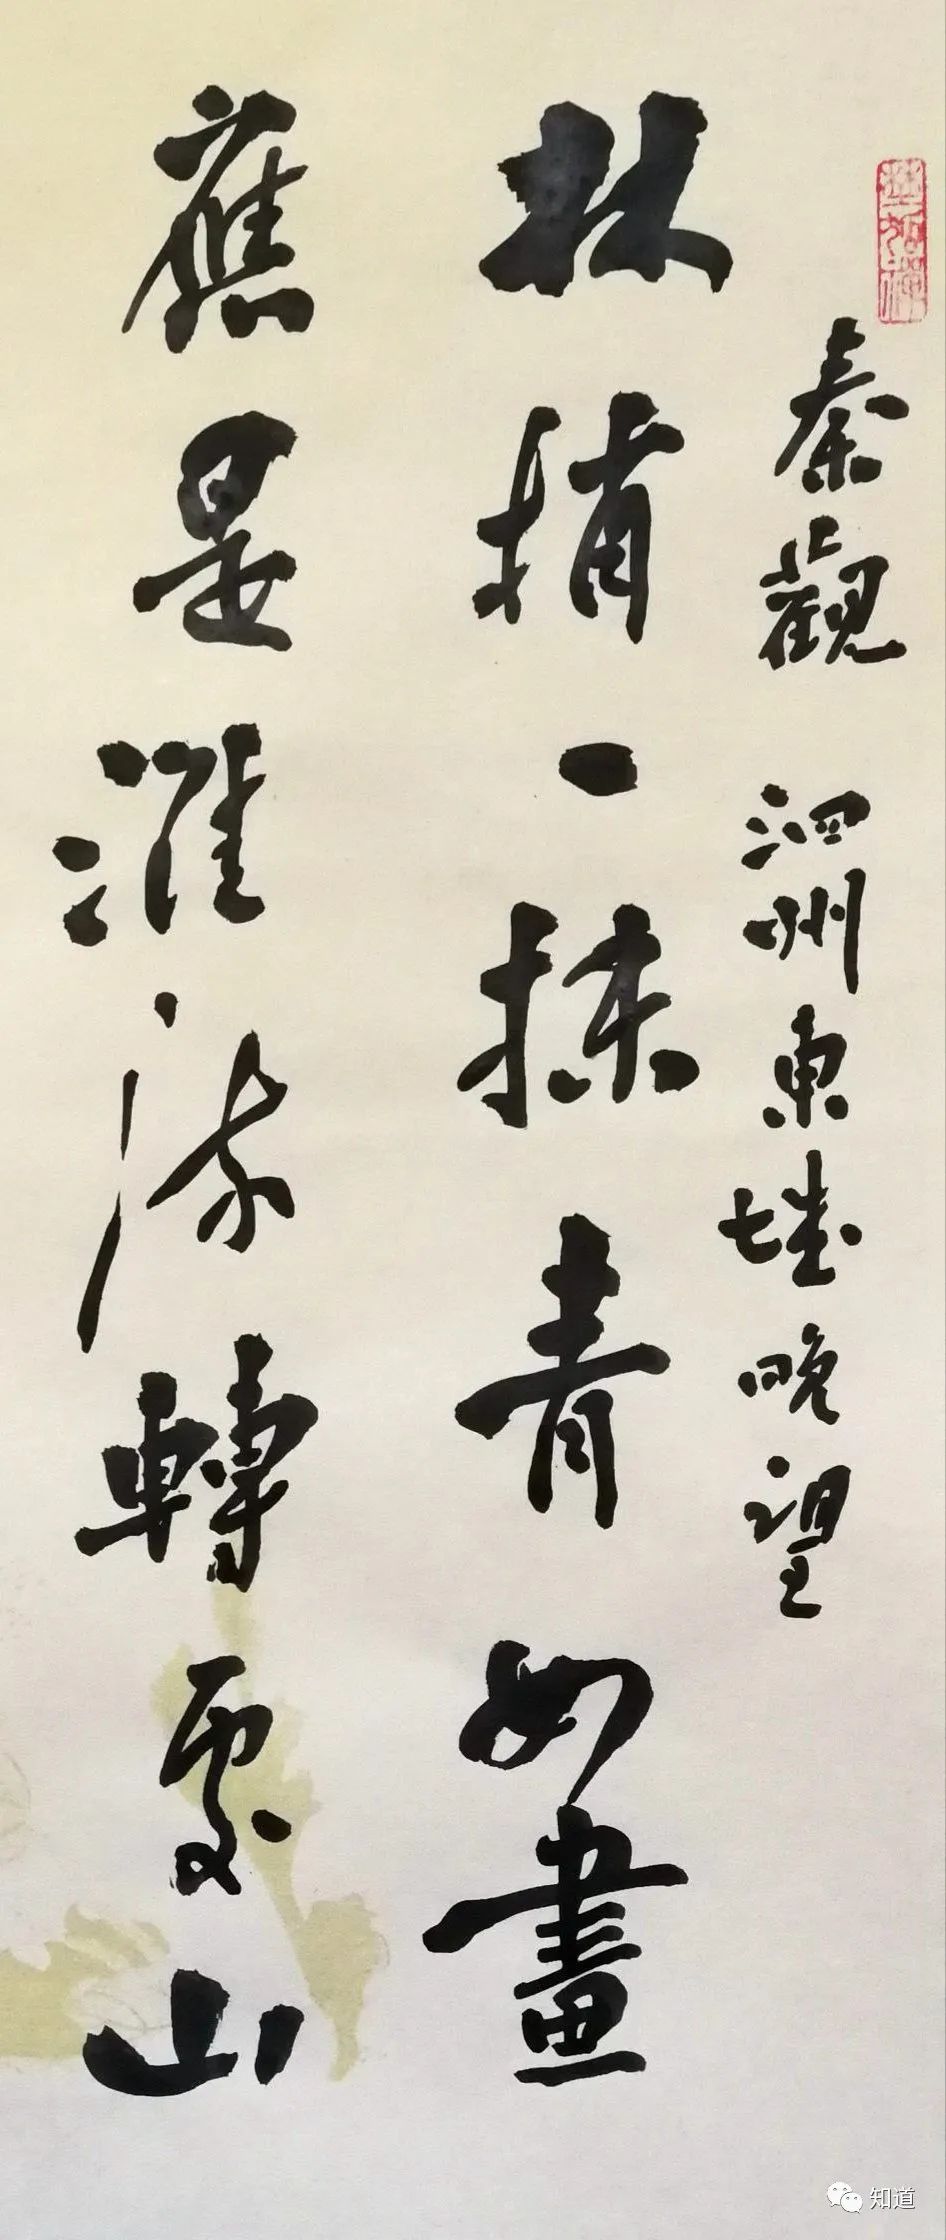 秦觀 泗州東城晚望
林梢一抹青如畫
應是淮流轉處山
知道